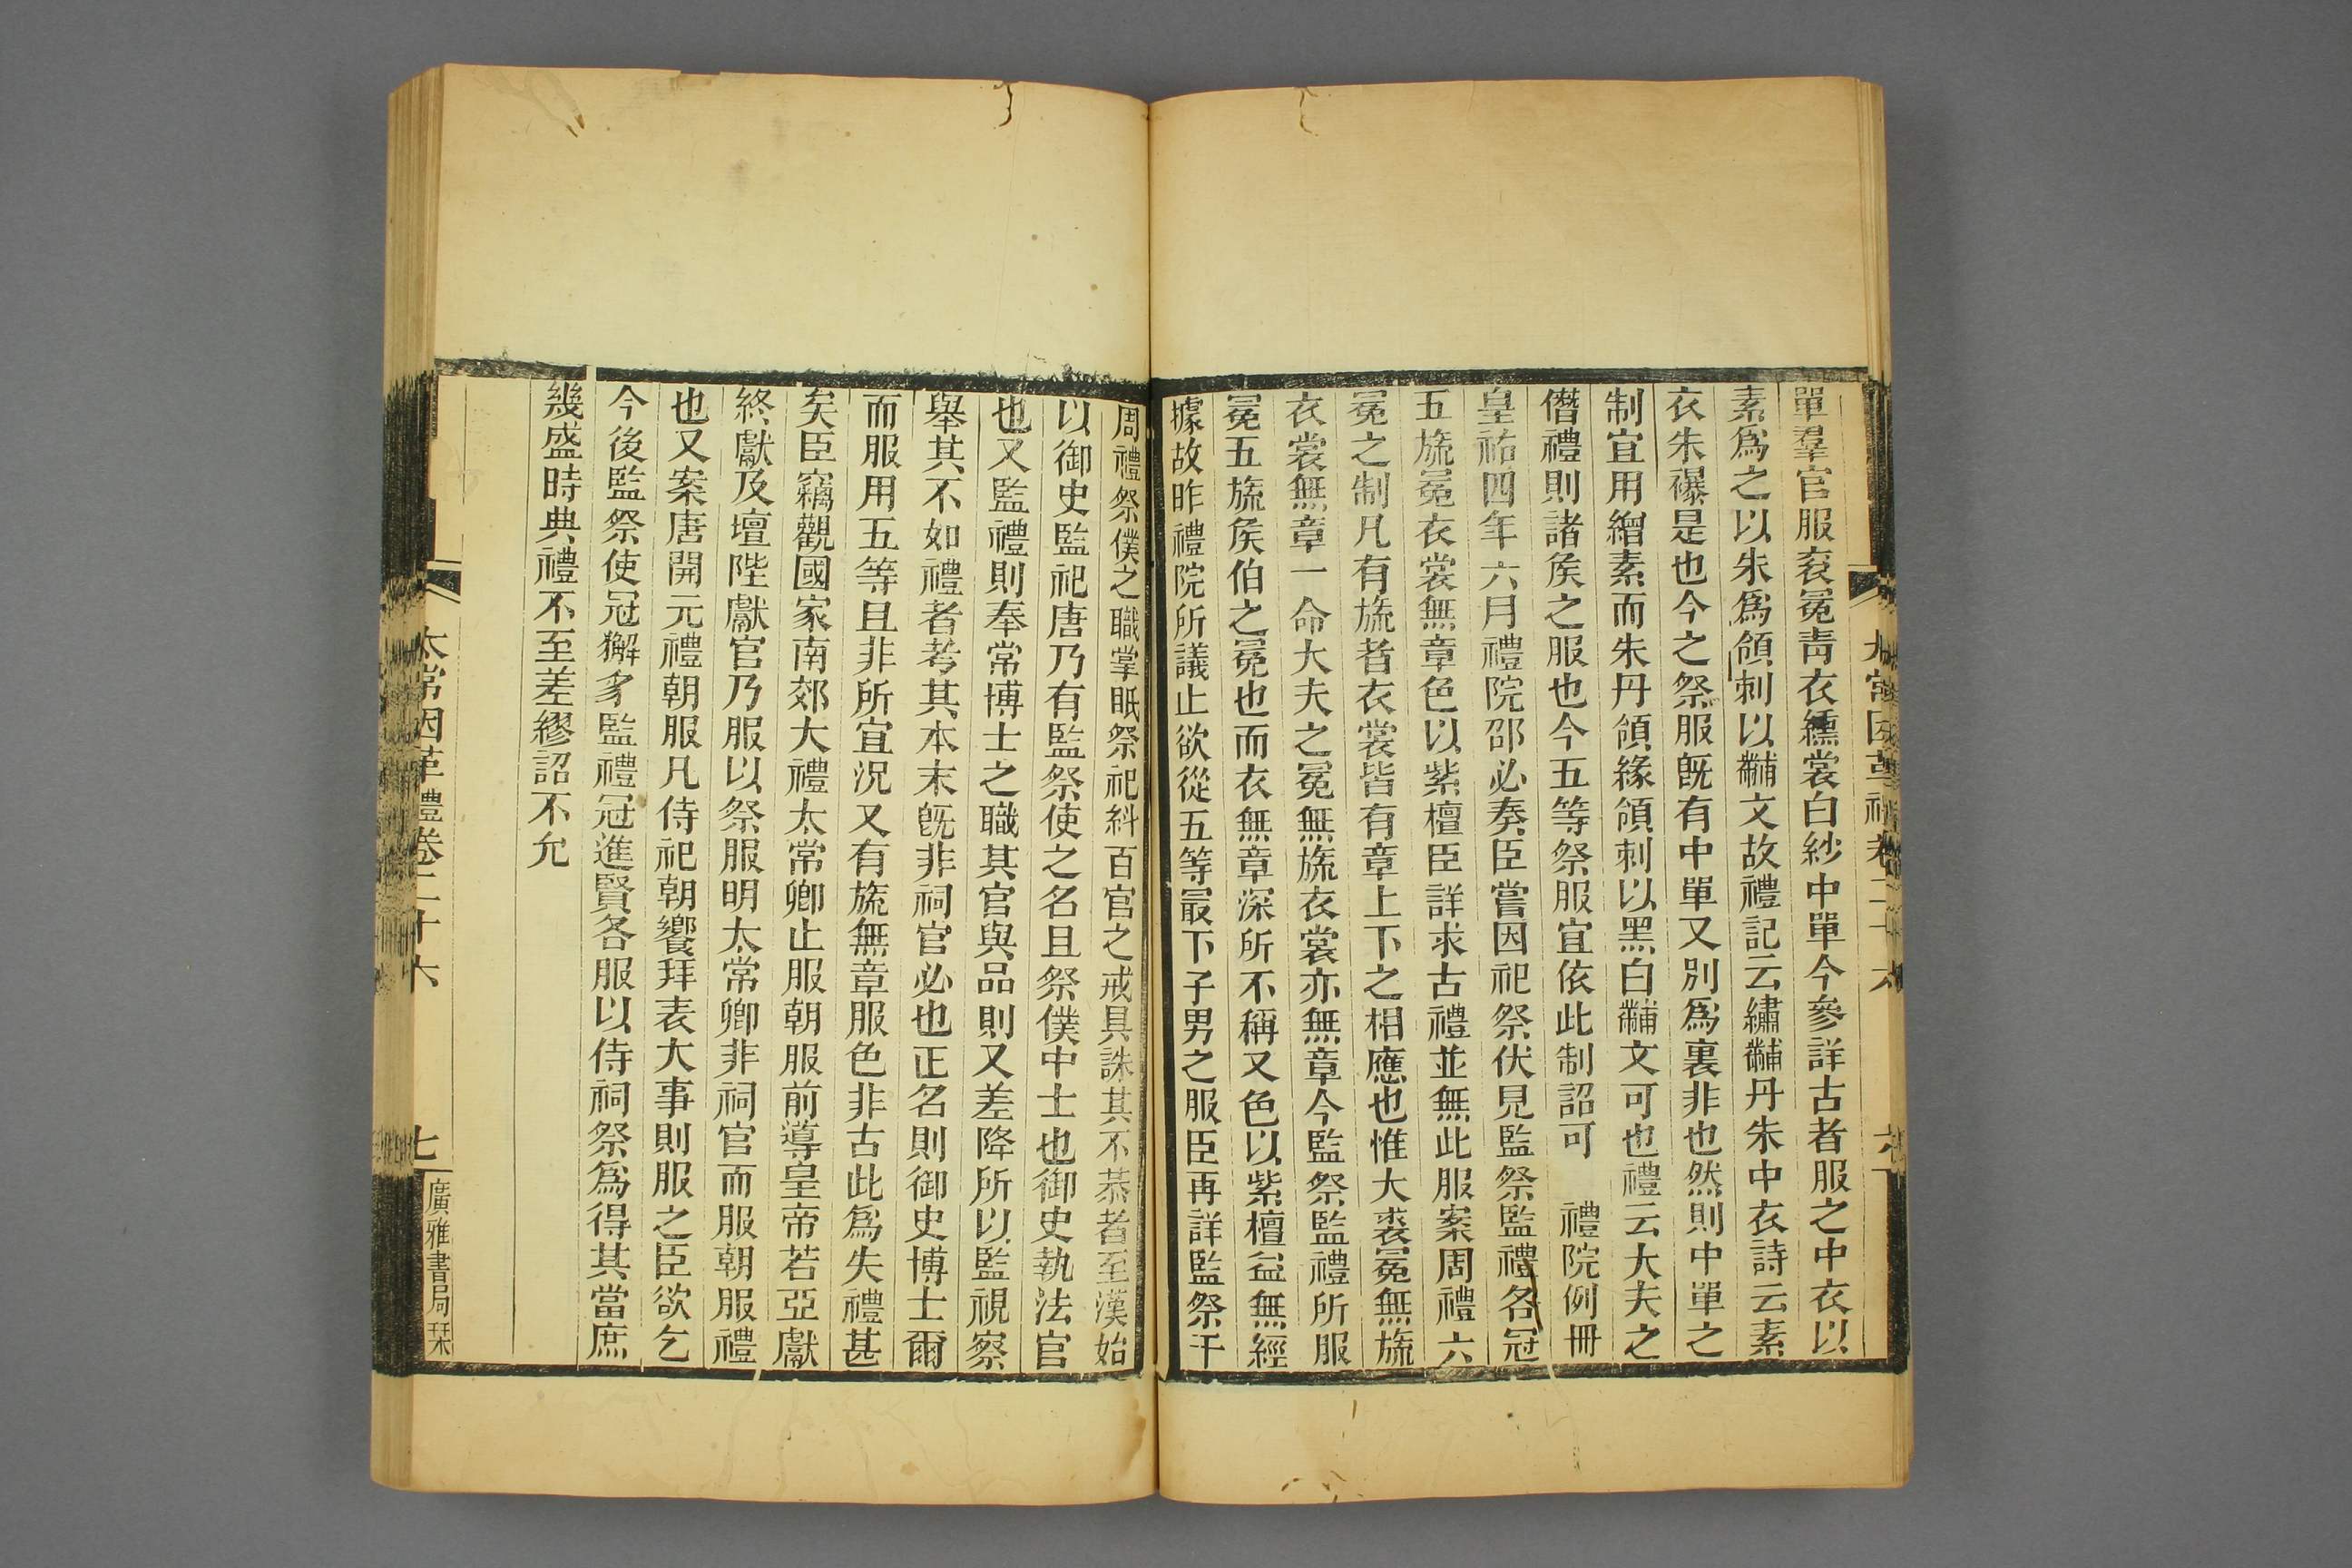 單羣官服袞冕靑衣纁裳白紗中單今參詳古者服之中衣以
素爲之以朱爲領刺以黼文故禮記云繡黼丹朱中衣詩云素
衣朱襮是也今之祭服旣有中單又別爲裏非也然則中單之
制宜用繒素而朱丹領緣領刺以黑白黼文可也禮云大夫之
僭禮則諸矦之服也今五等祭服宜依此制詔可　禮院例冊
皇祐四年六月禮院邵必奏臣嘗因祀祭伏見監祭監禮各冠
五旒冕衣裳無章色以紫檀臣詳求古禮並無此服案周禮六
冕之制凡有旒者衣裳皆有章上下之相應也惟大裘冕無旒
衣裳無章一命大夫之冕無旒衣裳亦無章今監祭監禮所服
冕五旒矦伯之冕也而衣無章深所不稱又色以紫檀益無經
據故昨禮院所議止欲從五等最下子男之服臣再詳監祭于
周禮祭僕之職掌眡祭祀糾百官之戒具誅其不恭者至漢始
以御史監祀唐乃有監祭使之名且祭僕中士也御史執法官
也又監禮則奉常博士之職其官與品則又差降所以監視察
舉其不如禮者考其本末旣非祠官必也正名則御史博士爾
而服用五等且非所宜況又有旒無章服色非古此爲失禮甚
矣臣竊觀國家南郊大禮太常卿止服朝服前導皇帝若亞獻
終獻及壇陛獻官乃服以祭服明太常卿非祠官而服朝服禮
也又案唐開元禮朝服凡侍祀朝饗拜表大事則服之臣欲乞
今後監祭使冠獬豸監禮冠進賢各服以侍祠祭爲得其當庶
幾盛時典禮不至差繆詔不允
太常因革禮卷二十六
七
廣雅書局栞